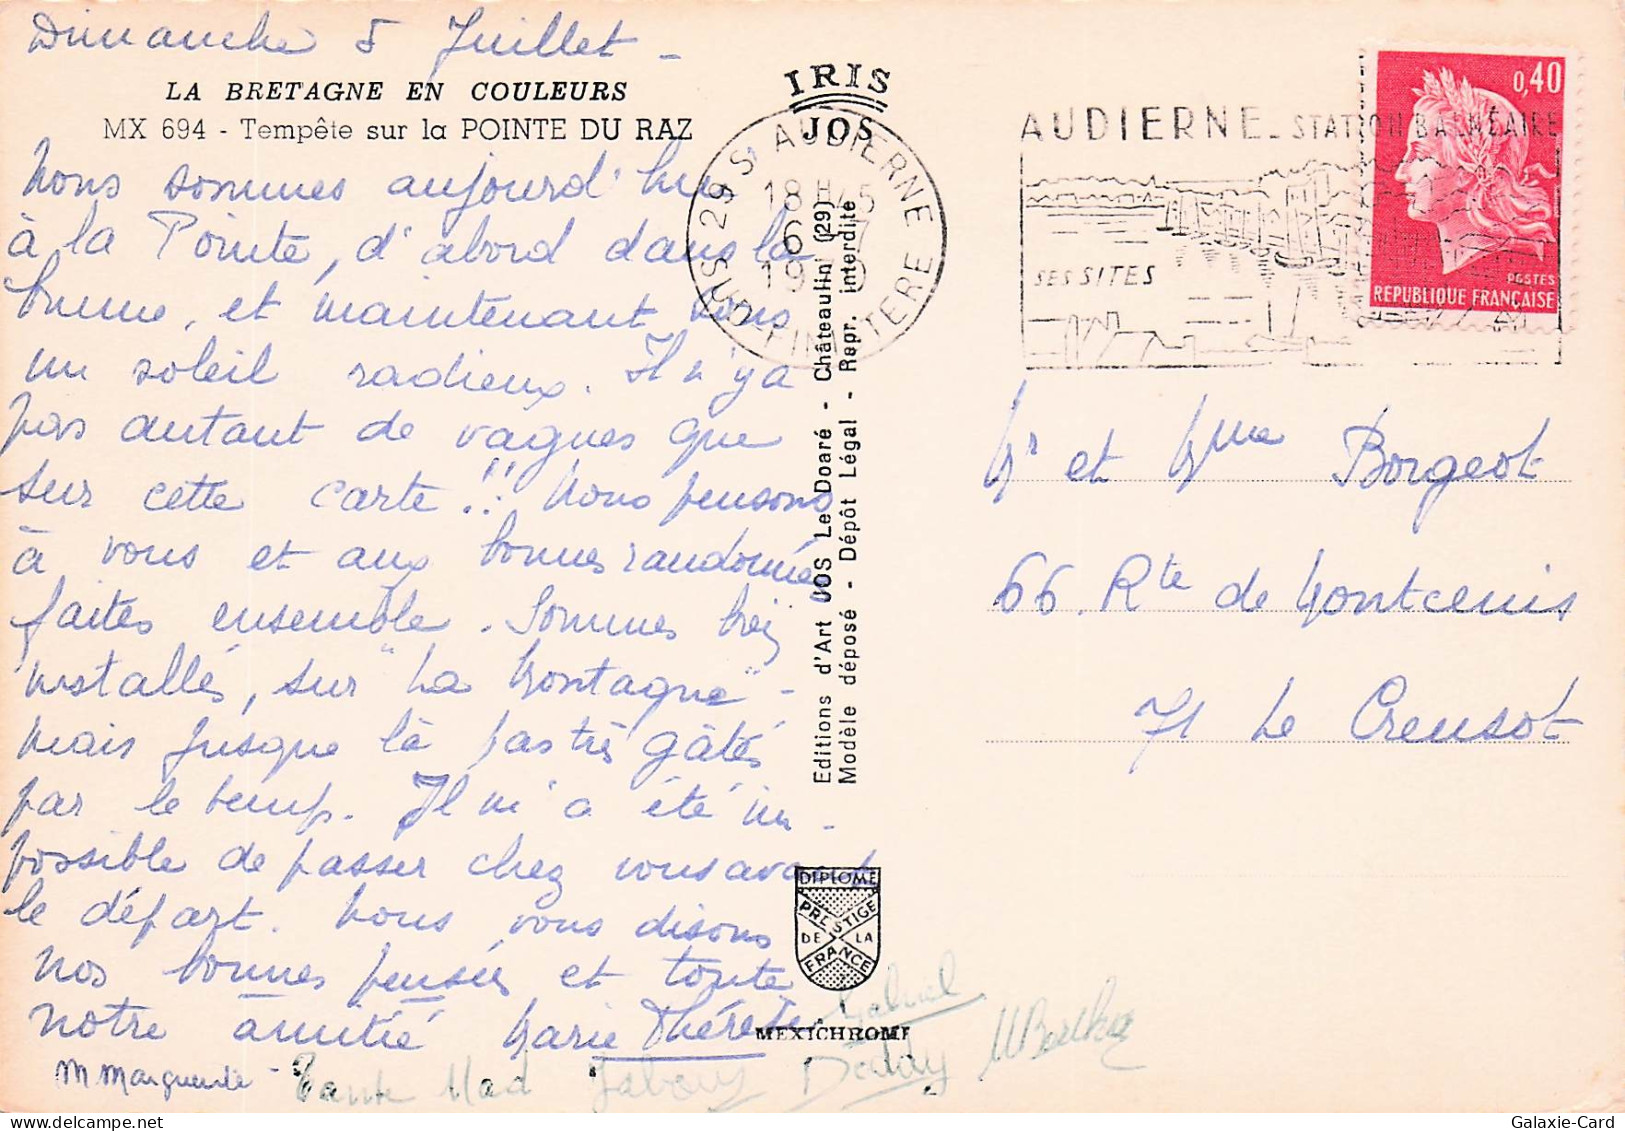 Dimanche 5 Juillet -
LA BRETAGNE EN COULEURS
MX 694 - Tempête sur la POINTE DU RAZ
Nous sommes aujourd'hui
à la Pointe, d'abord dans la
brume, et maintenant sous
un soleil radieux. Il n'y a
pas autant de vagues que
sur cette carte !! Nous pensons
à vous et aux bonnes randonnées
faites ensemble. Sommes bien
installés, sur "La Montagne" -
mais jusque là pas très gâtés
par le temps. Il m'a été im-
possible de passer chez vous avant
le départ. Nous vous disons
nos bonnes pensées et toute
notre amitié Marie Thérèse
M Marguerite - Tante Mad
Gabriel
Daddy
M Berthe
IRIS
JOS
Editions d'Art JOS Le Doaré - Châteaulin (29)
Modèle déposé - Dépôt Légal - Repr. interdite
DIPLOME
PRESTIGE
DE LA
FRANCE
MEXICHROME
29 S AUDIERNE
18 H 45
6 - 7
1970
SUD FINISTERE
AUDIERNE - STATION BALNEAIRE
SES SITES
0,40
POSTES
REPUBLIQUE FRANÇAISE
Mr et Mme Borgeot
66. Rte de Montcenis
71 Le Creusot
Galaxie-Card